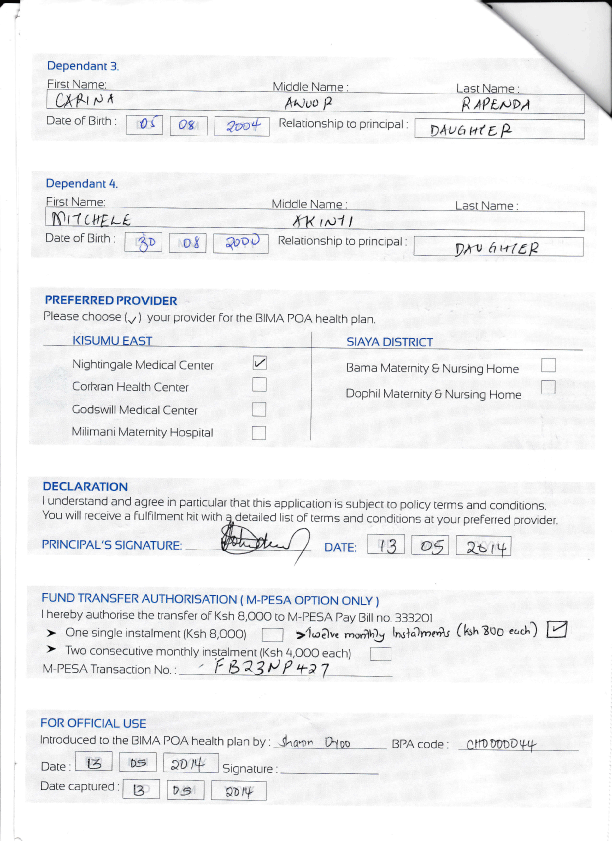 Dependant 3.
First Name: Middle Name : Last Name :
CARINA AWUOR RAPENDA
Date of Birth : 05 08 2004 Relationship to principal : DAUGHTER
Dependant 4.
First Name: Middle Name : Last Name :
MITCHELE AKINYI
Date of Birth : 30 08 2000 Relationship to principal : DAUGHTER
PREFERRED PROVIDER
Please choose (✓) your provider for the BIMA POA health plan.
KISUMU EAST SIAYA DISTRICT
Nightingale Medical Center ✓ Bama Maternity & Nursing Home
Corkran Health Center Dophil Maternity & Nursing Home
Godswill Medical Center
Milimani Maternity Hospital
DECLARATION
I understand and agree in particular that this application is subject to policy terms and conditions.
You will receive a fulfilment kit with a detailed list of terms and conditions at your preferred provider.
PRINCIPAL'S SIGNATURE: DATE: 13 05 2014
FUND TRANSFER AUTHORISATION ( M-PESA OPTION ONLY )
I hereby authorise the transfer of Ksh 8,000 to M-PESA Pay Bill no. 333201
➤ One single instalment (Ksh 8,000) >Twelve monthly Instalments (Ksh 800 each) ✓
➤ Two consecutive monthly instalment (Ksh 4,000 each)
M-PESA Transaction No. : FB23NP427
FOR OFFICIAL USE
Introduced to the BIMA POA health plan by : Sharon BPA code : CHD0000044
Date : 13 05 2014 Signature :
Date captured : 13 05 2014